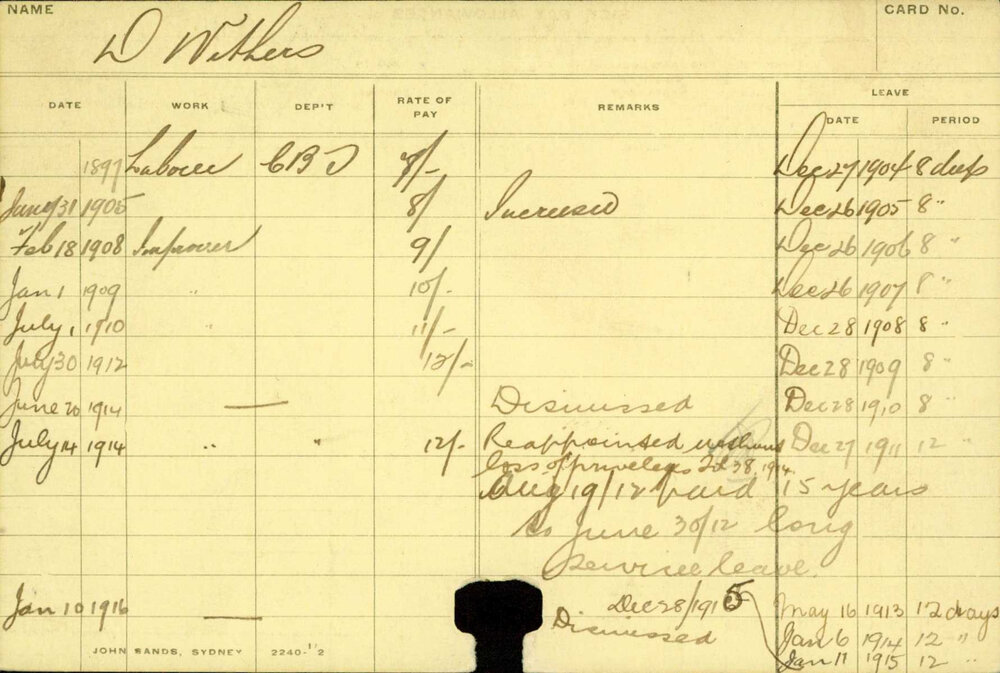 NAME CARD No.
D Withers
DATE WORK DEP'T RATE OF PAY REMARKS LEAVE
DATE PERIOD
1897 Labourer 7/- Dec 27 1904 8 days
31 1905 8/ Increased Dec 26 1905 8 "
Feb 18 1908 Improver 9/ Dec 26 1906 8 "
Jan 1 1909 " 10/- Dec 26 1907 8 "
July 1 1910 " 11/- Dec 28 1908 8 "
July 30 1912 12/- Dec 28 1909 8 "
June 20 1914 — Dismissed Dec 28 1910 8 "
July 14 1914 " " 12/- Reappointed without Dec 27 1911 12 "
loss of privileges 38, 1914
Aug 19/12 paid 15 years
to June 30/12 long
service leave.
Jan 10 1916 — Dec 28/1915 May 16 1913 12 days
Dismissed Jan 6 1914 12 "
JOHN SANDS, SYDNEY 2240-1/2 Jan 11 1915 12 "